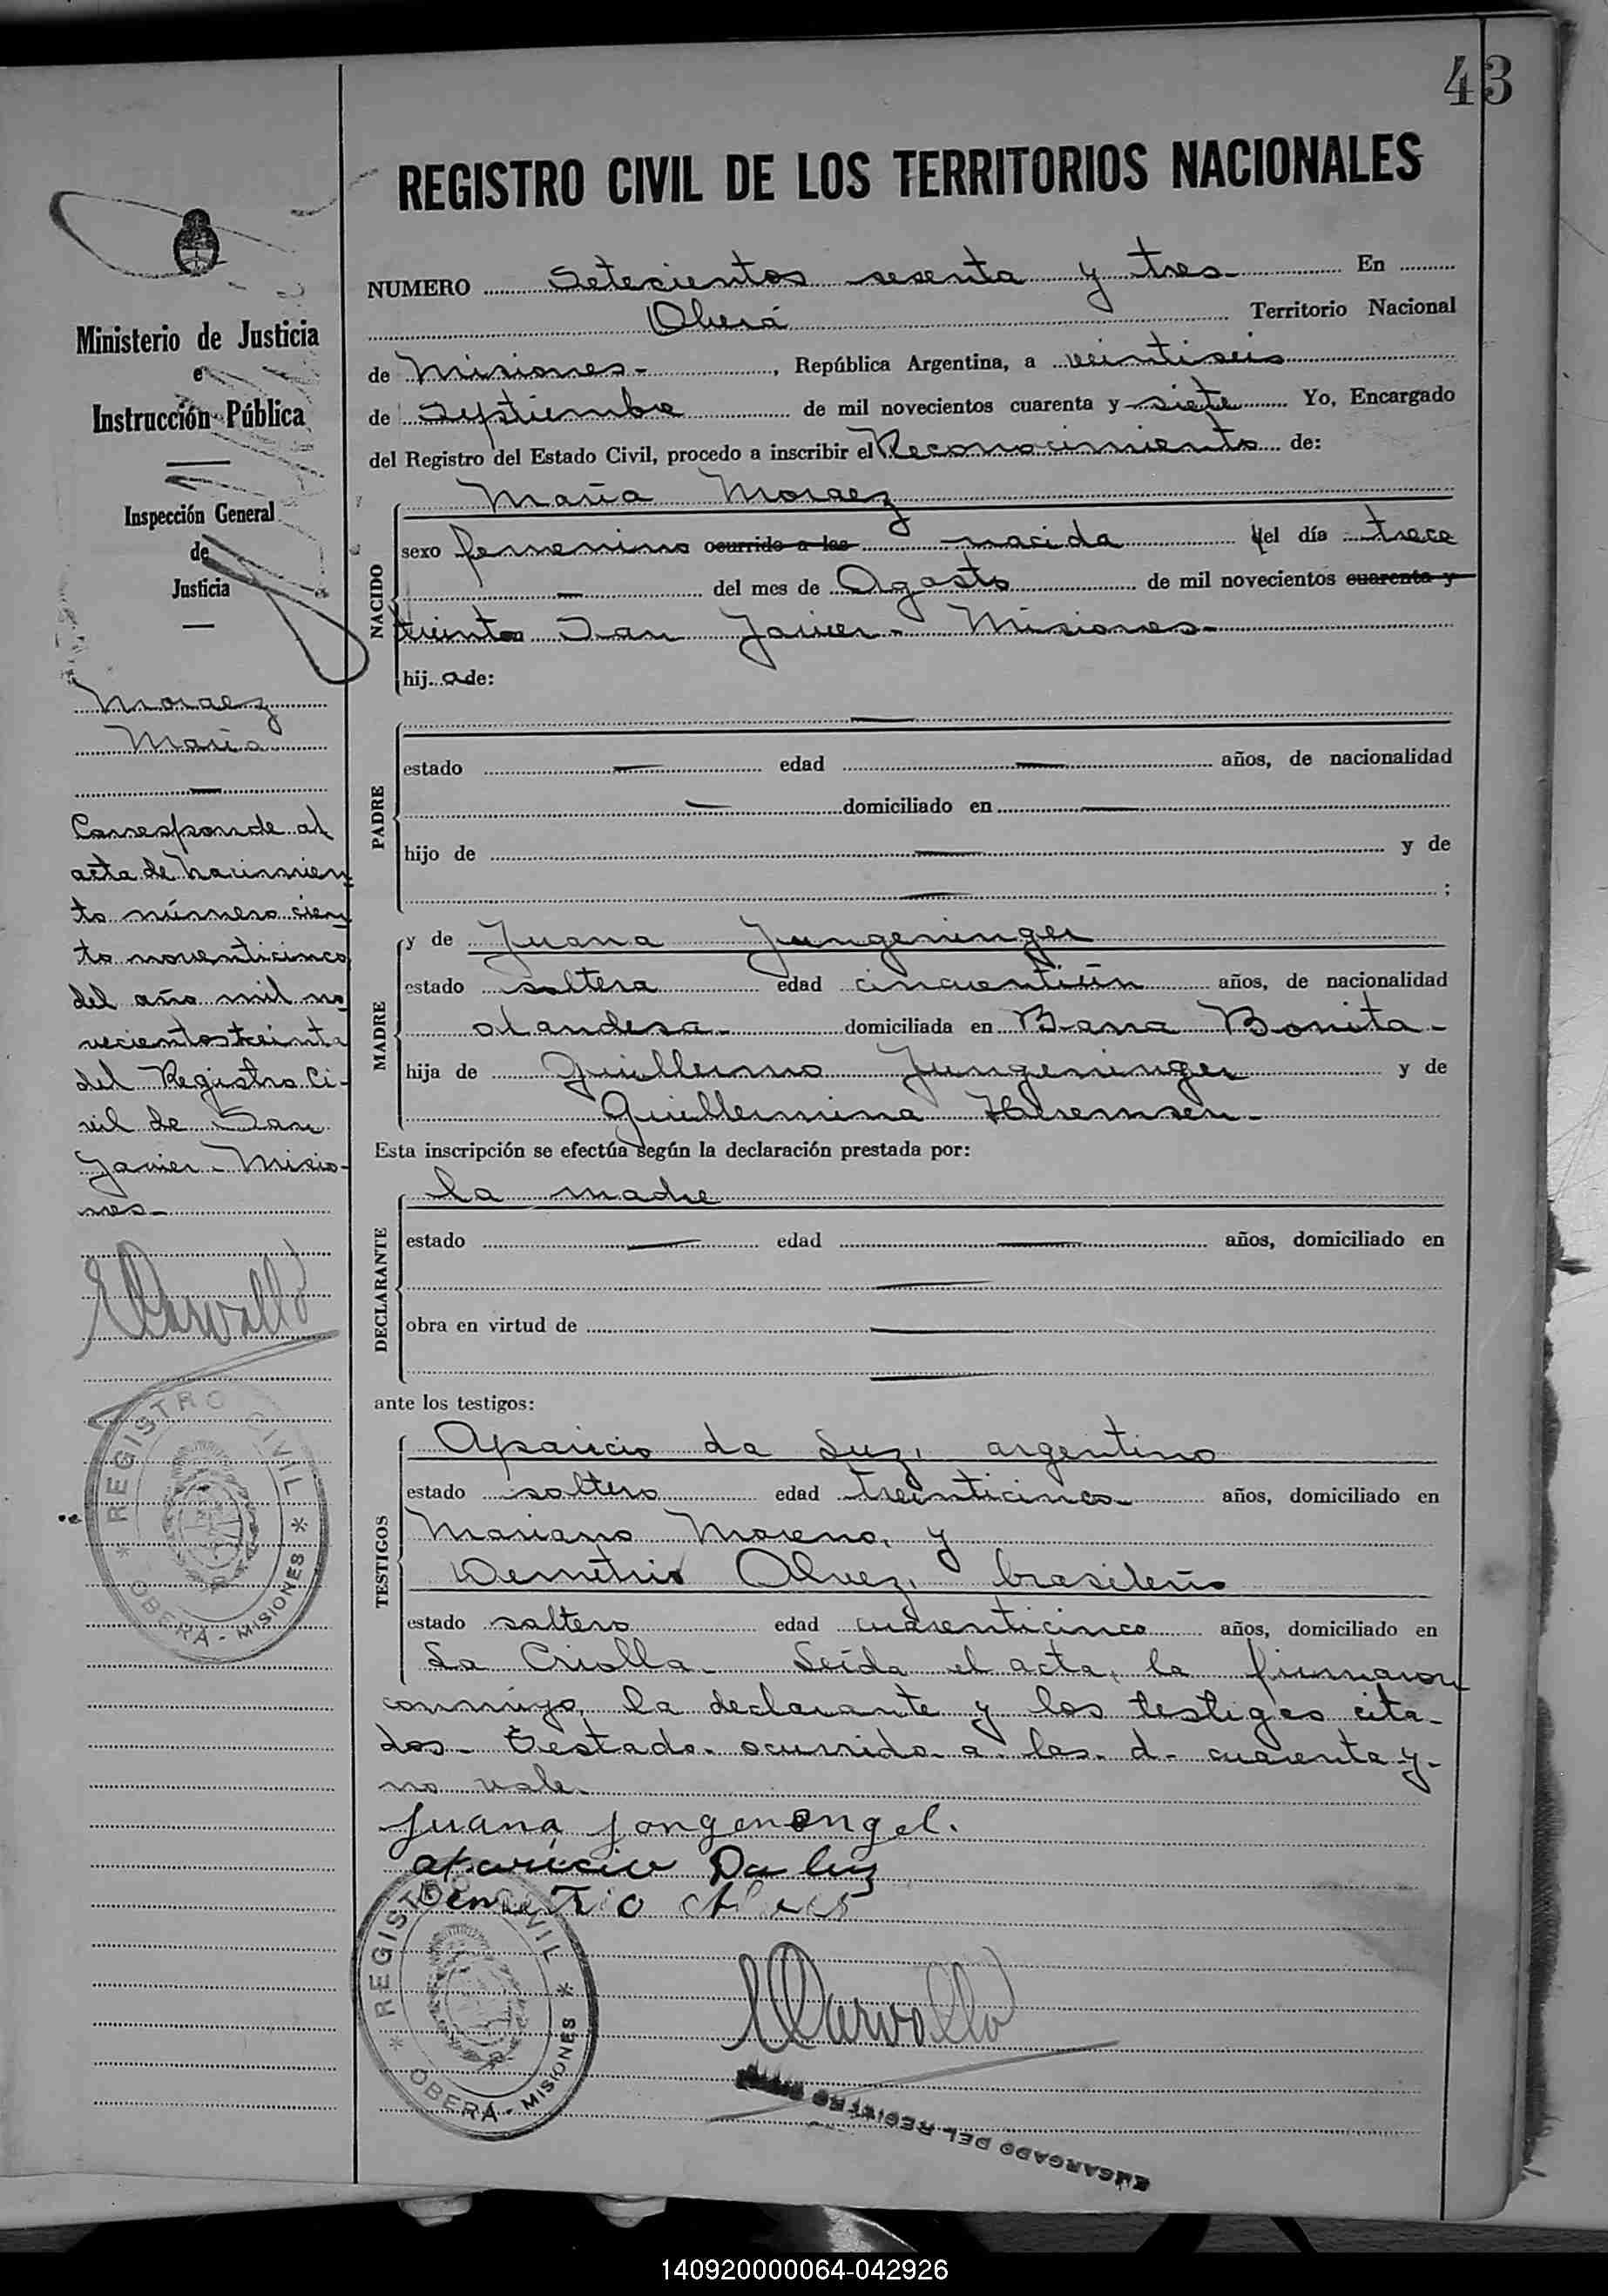 43
REGISTRO CIVIL DE LOS TERRITORIOS NACIONALES
Ministerio de Justicia
e
Instrucción Pública
Inspección General
de
Justicia
Moraez
María
Corresponde al
acta de nacimien
to número cien
to noventicinco
del año mil no
vecientos treinta
del Registro Ci-
vil de San
Javier - Misio-
nes -
REGISTRO CIVIL
* OBERÁ - MISIONES *
NUMERO Setecientos sesenta y tres En
Oberá Territorio Nacional
de Misiones - , República Argentina, a veintiseis
de Septiembre de mil novecientos cuarenta y siete Yo, Encargado
del Registro del Estado Civil, procedo a inscribir el Reconocimiento de:
María Moraez
NACIDO
sexo femenino ocurrido a las nacida el día trece
del mes de Agosto de mil novecientos cuarenta y
treinta San Javier - Misiones -
hij a de:
PADRE
estado edad años, de nacionalidad
domiciliado en
hijo de y de
;
MADRE
y de Juana Jungeninger
estado soltera edad cincuentiún años, de nacionalidad
olandesa - domiciliada en Barra Bonita -
hija de Guillermo Jungeninger y de
Guillermina -
Esta inscripción se efectúa según la declaración prestada por:
DECLARANTE
la madre
estado edad años, domiciliado en
obra en virtud de
ante los testigos:
TESTIGOS
Aparicio da Luz, argentino
estado soltero edad treinticinco años, domiciliado en
Mariano Moreno, y
Demetrio Alvez, brasileño
estado soltero edad cuarenticinco años, domiciliado en
La Criolla - Leída el acta, la firmaron
conmigo, la declarante y los testigos cita-
dos - Testado - ocurrido - a - las - d - cuarenta - y -
no vale -
Juana jongenengel.
aparicio Da luz
Demetrio
REGISTRO CIVIL
* OBERÁ - MISIONES *
ENCARGADO DEL REGISTRO CIVIL
140920000064-042926